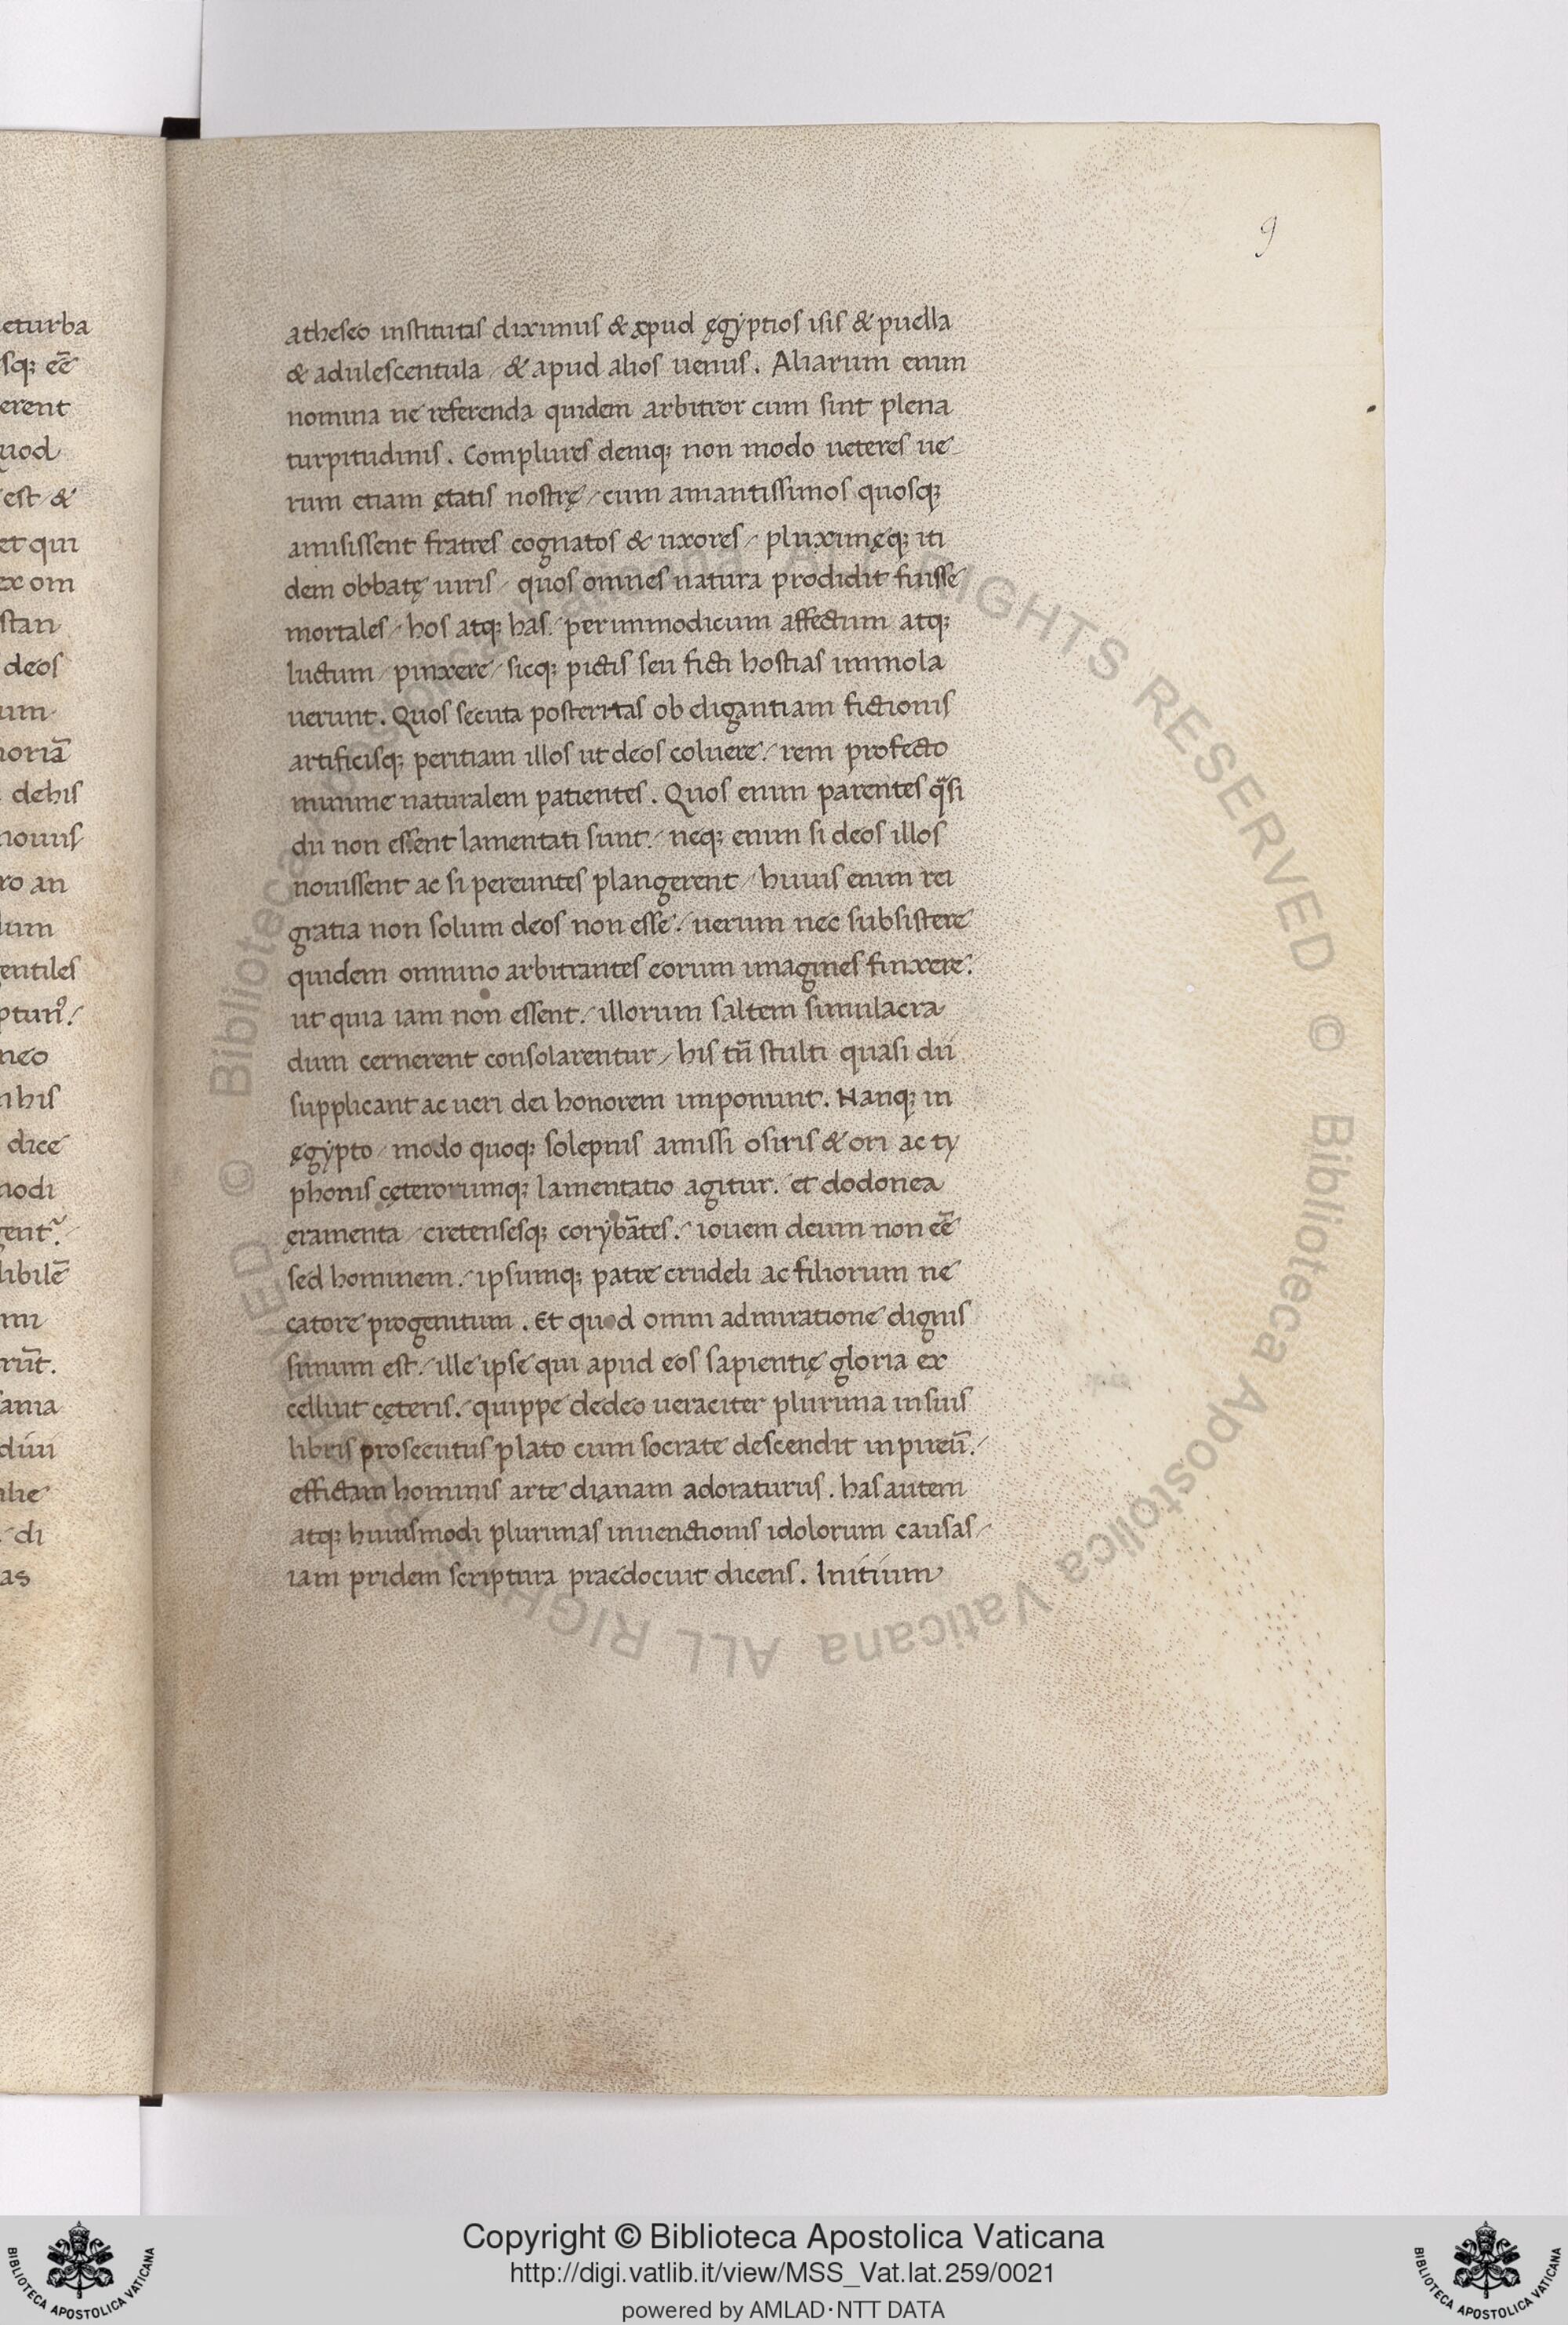 9
eturba
sq; eē
erent
uod
est / &
et qui
ex om
stan
deos
um
oriā
dehis
nouus
ro an
um
entiles
ptur᷒ ./
neo
n his
dice
odi
gent᷒ ./
ibilē
mi
rūt.
ania
diui
lie
/ di
as
atheseo institutas diximus & apud ęgyptios isis & puella
& adulescentula / & apud alios uenus . Aliarum enim
nomina ne referenda quidem arbitror cum sint plena
turpitudinis . Complures deniq; non modo ueteres ue-
rum etiam ętatis nostrę / cum amantissimos quosq;
amisissent fratres cognatos & uxores / plurimęq; iti
dem obbatę uiris / quos omnes natura prodidit fuisse
mortales / hos atq; has ./ per immodicum affectum atq;
luctum / pinxere / sicq; pictis seu ficti hostias immola
uerunt . Quos secuta posteritas ob eligantiam fictionis
artificisq; peritiam illos ut deos coluere ./ rem profecto
minime naturalem patientes . Quos enim parentes q̄si
dii non essent lamentati sunt ./ neq; enim si deos illos
nouissent ac si pereuntes plangerent / huius enim rei
gratia non solum deos non esse ./ uerum nec subsistere
quidem omnino arbitrantes eorum imagines finxere ./
ut quia iam non essent ./ illorum saltem simulacra
dum cernerent consolarentur / his tn̄ stulti quasi dii
supplicant ac ueri dei honorem imponunt . Nanq; in
ęgypto / modo quoq; solepnis amissi osiris & ori ac ty
phonis cęterorumq; lamentatio agitur ./ et dodonea
ęramenta / cretensesq; corybātes ./ iouem deum non eē
sed hominem ./ ipsumq; patre crudeli ac filiorum ne
catore progenitum . Et quod omni admiratione dignis
simum est ./ ille ipse qui apud eos sapientię gloria ex
celluit cęteris ./ quippe dedeo ueraciter plurima insuis
libris prosecutus plato cum socrate descendit inpireū ./
effictam hominis arte dianam adoraturus . has autem
atq; huiusmodi plurimas inuenctionis idolorum causas /
iam pridem scriptura praedocuit dicens . Initium
© Biblioteca Apostolica Vaticana ALL RIGHTS RESERVED © Biblioteca Apostolica Vaticana ALL RIGHTS RESERVED
Copyright © Biblioteca Apostolica Vaticana
http://digi.vatlib.it/view/MSS_Vat.lat.259/0021
powered by AMLAD·NTT DATA
BIBLIOTECA APOSTOLICA VATICANA
BIBLIOTECA APOSTOLICA VATICANA